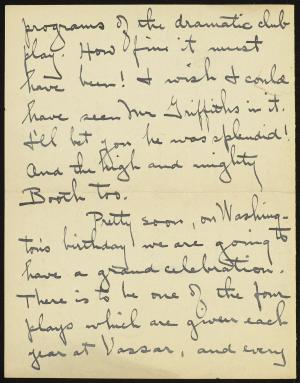 programs of the dramatic club
play. How fine it must
have been! I wish I could
have seen Mr Griffiths in it.
I'll bet you he was splendid!
And the high and mighty
Booth too.
Pretty soon, on Washing-
ton's birthday we are going to
have a grand celebration.
There is to be one of the four
plays which are given each
year at Vassar, and every